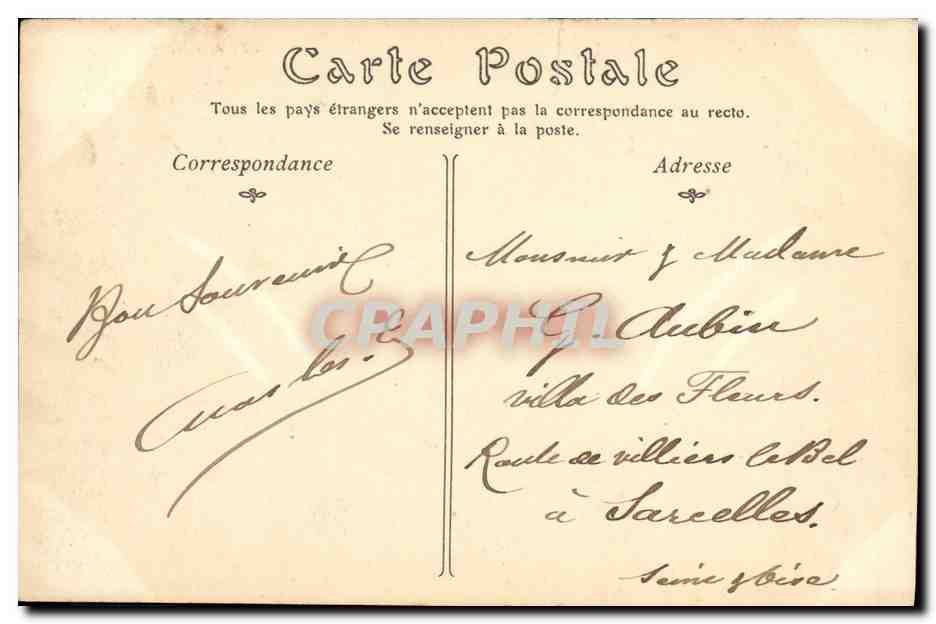 Carte Postale
Tous les pays étrangers n'acceptent pas la correspondance au recto.
Se renseigner à la poste.
Correspondance
Bon Souvenir
Adresse
Monsieur & Madame
G. Aubin
villa des Fleurs.
Route de villiers le Bel
à Sarcelles.
Seine & Oise
CPAPHIL